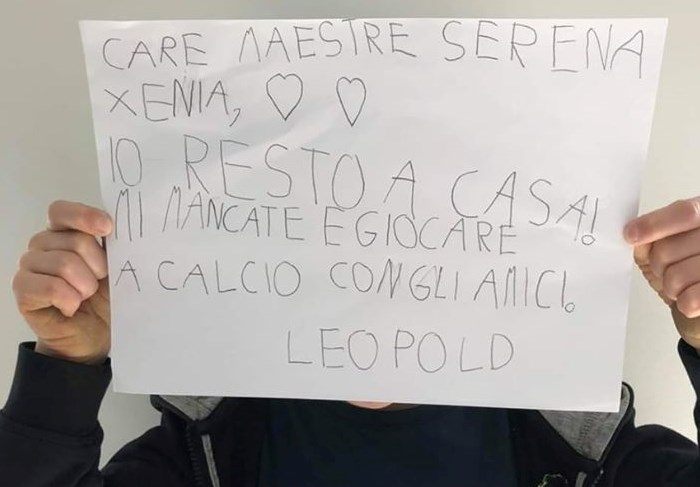 CARE MAESTRE SERENA
XENIA, ♡ ♡
IO RESTO A CASA!
MI MANCATE E GIOCARE
A CALCIO CON GLI AMICI.
LEOPOLD